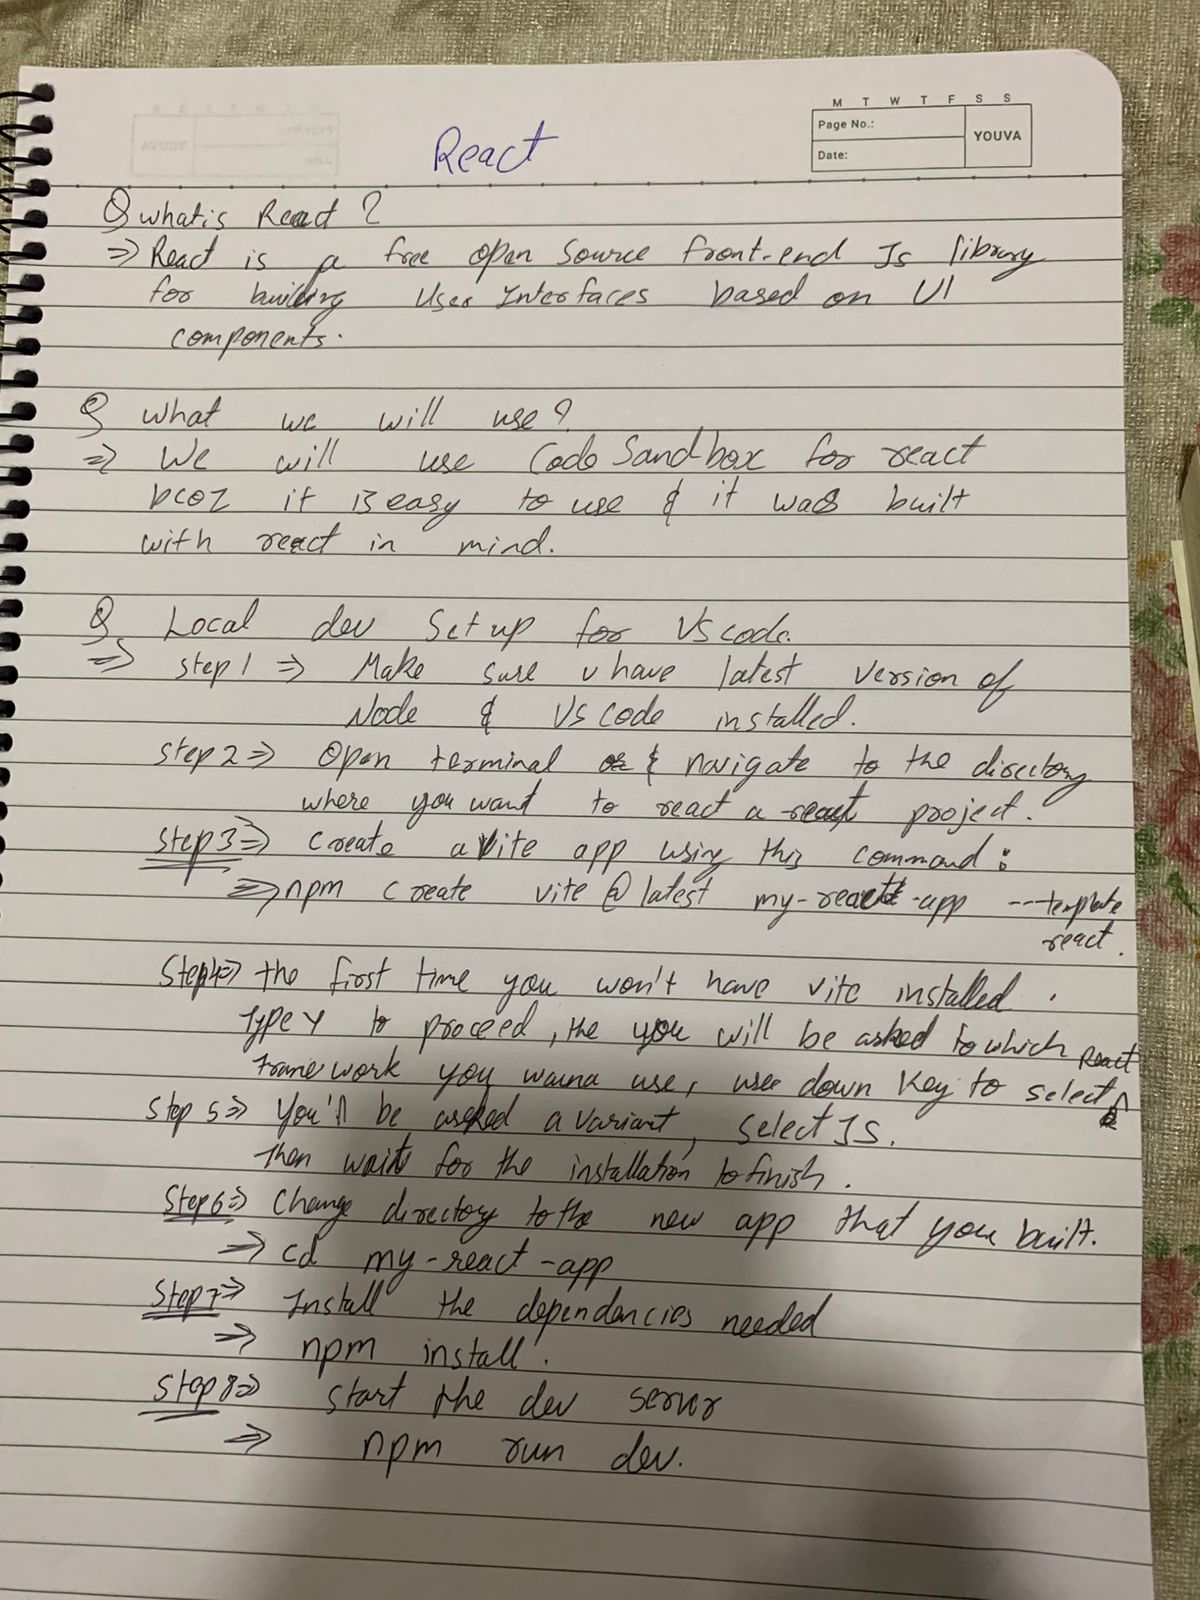 M T W T F S S
Page No.:
YOUVA
Date:
React
Q what is React ?
⇒ React is a free open Source front-end Js library
for building User Interfaces based on UI
components.
Q what we will use ?
⇒ We will use Code Sandbox for react
bcoz it is easy to use & it was built
with react in mind.
Q Local dev Set up for VS code.
⇒ step 1 ⇒ Make sure u have latest version of
Node & VS code installed.
Step 2 ⇒ Open terminal & navigate to the directory
where you want to react a react project.
Step 3 ⇒ Create a Vite app using this command :
⇒ npm create vite @ latest my-react-app --template
react.
Step 4 ⇒ the first time you won't have vite installed.
Type Y to proceed, the you will be asked to which
framework you wanna use, use down key to select React
Step 5 ⇒ You'll be asked a variant, select JS.
Then wait for the installation to finish.
Step 6 ⇒ Change directory to the new app that you built.
⇒ cd my-react-app
Step 7 ⇒ Install the dependancies needed
⇒ npm install.
Step 8 ⇒ start the dev server
⇒ npm run dev.